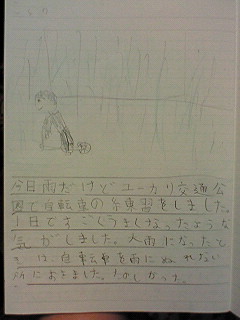 今日雨だけどユーカリ交通公
園で自転車の練習をしました。
1日ですごくうまくなったような
気がしました。大雨になったと
きは自転車を雨にぬれない
所におきました。たのしかった。